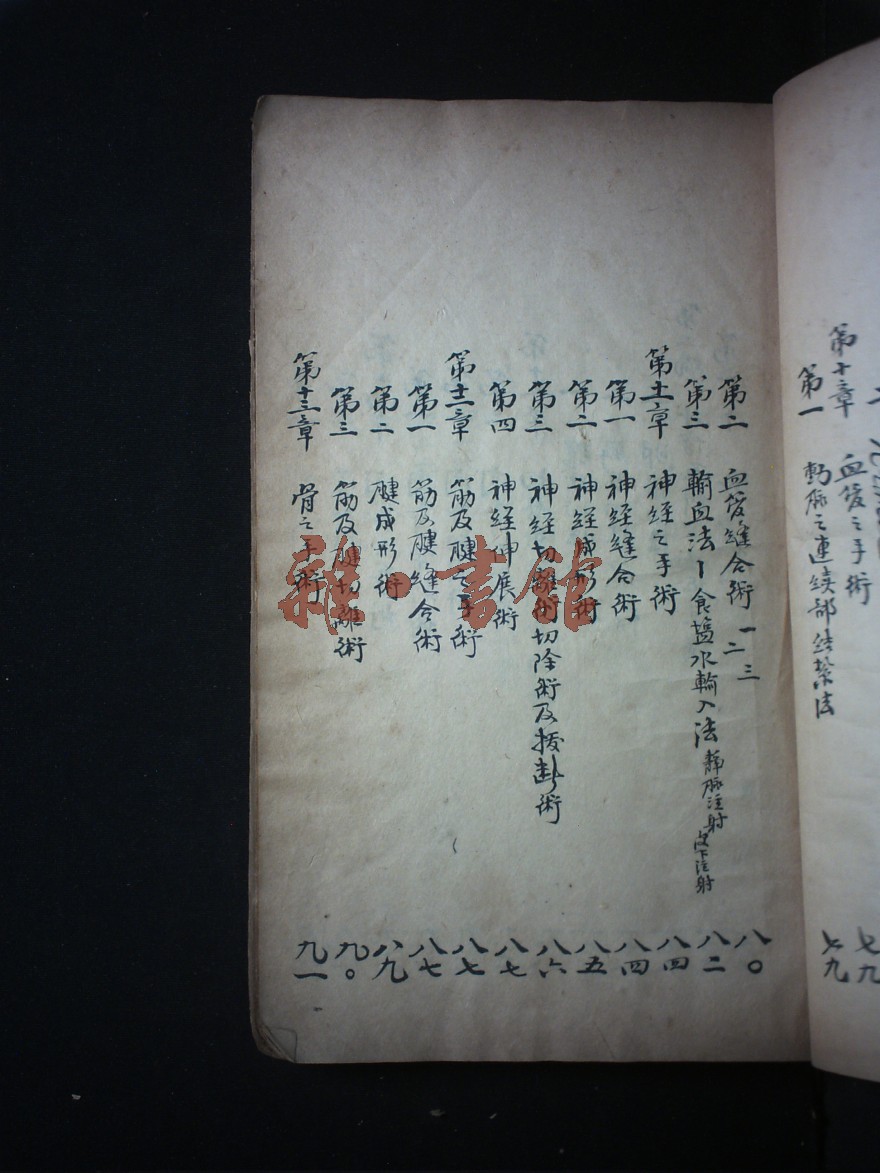 第十章 血管之手術 七九
第一 動脈之連續部結紮法 七九
第二 血管縫合術 一 二 三 八〇
第三 輸血法 食鹽水輸入法 靜脈注射 皮下注射 八二
第十一章 神経之手術 八四
第一 神経縫合術 八四
第二 神経成形術 八五
第三 神経切離術切除術及拔断術 八六
第四 神経伸展術 八七
第十二章 筋及腱之手術 八七
第一 筋及腱縫合術 八七
第二 腱成形術 八九
第三 筋及腱切離術 九〇
第十三章 骨之手術 九一
雜·書館